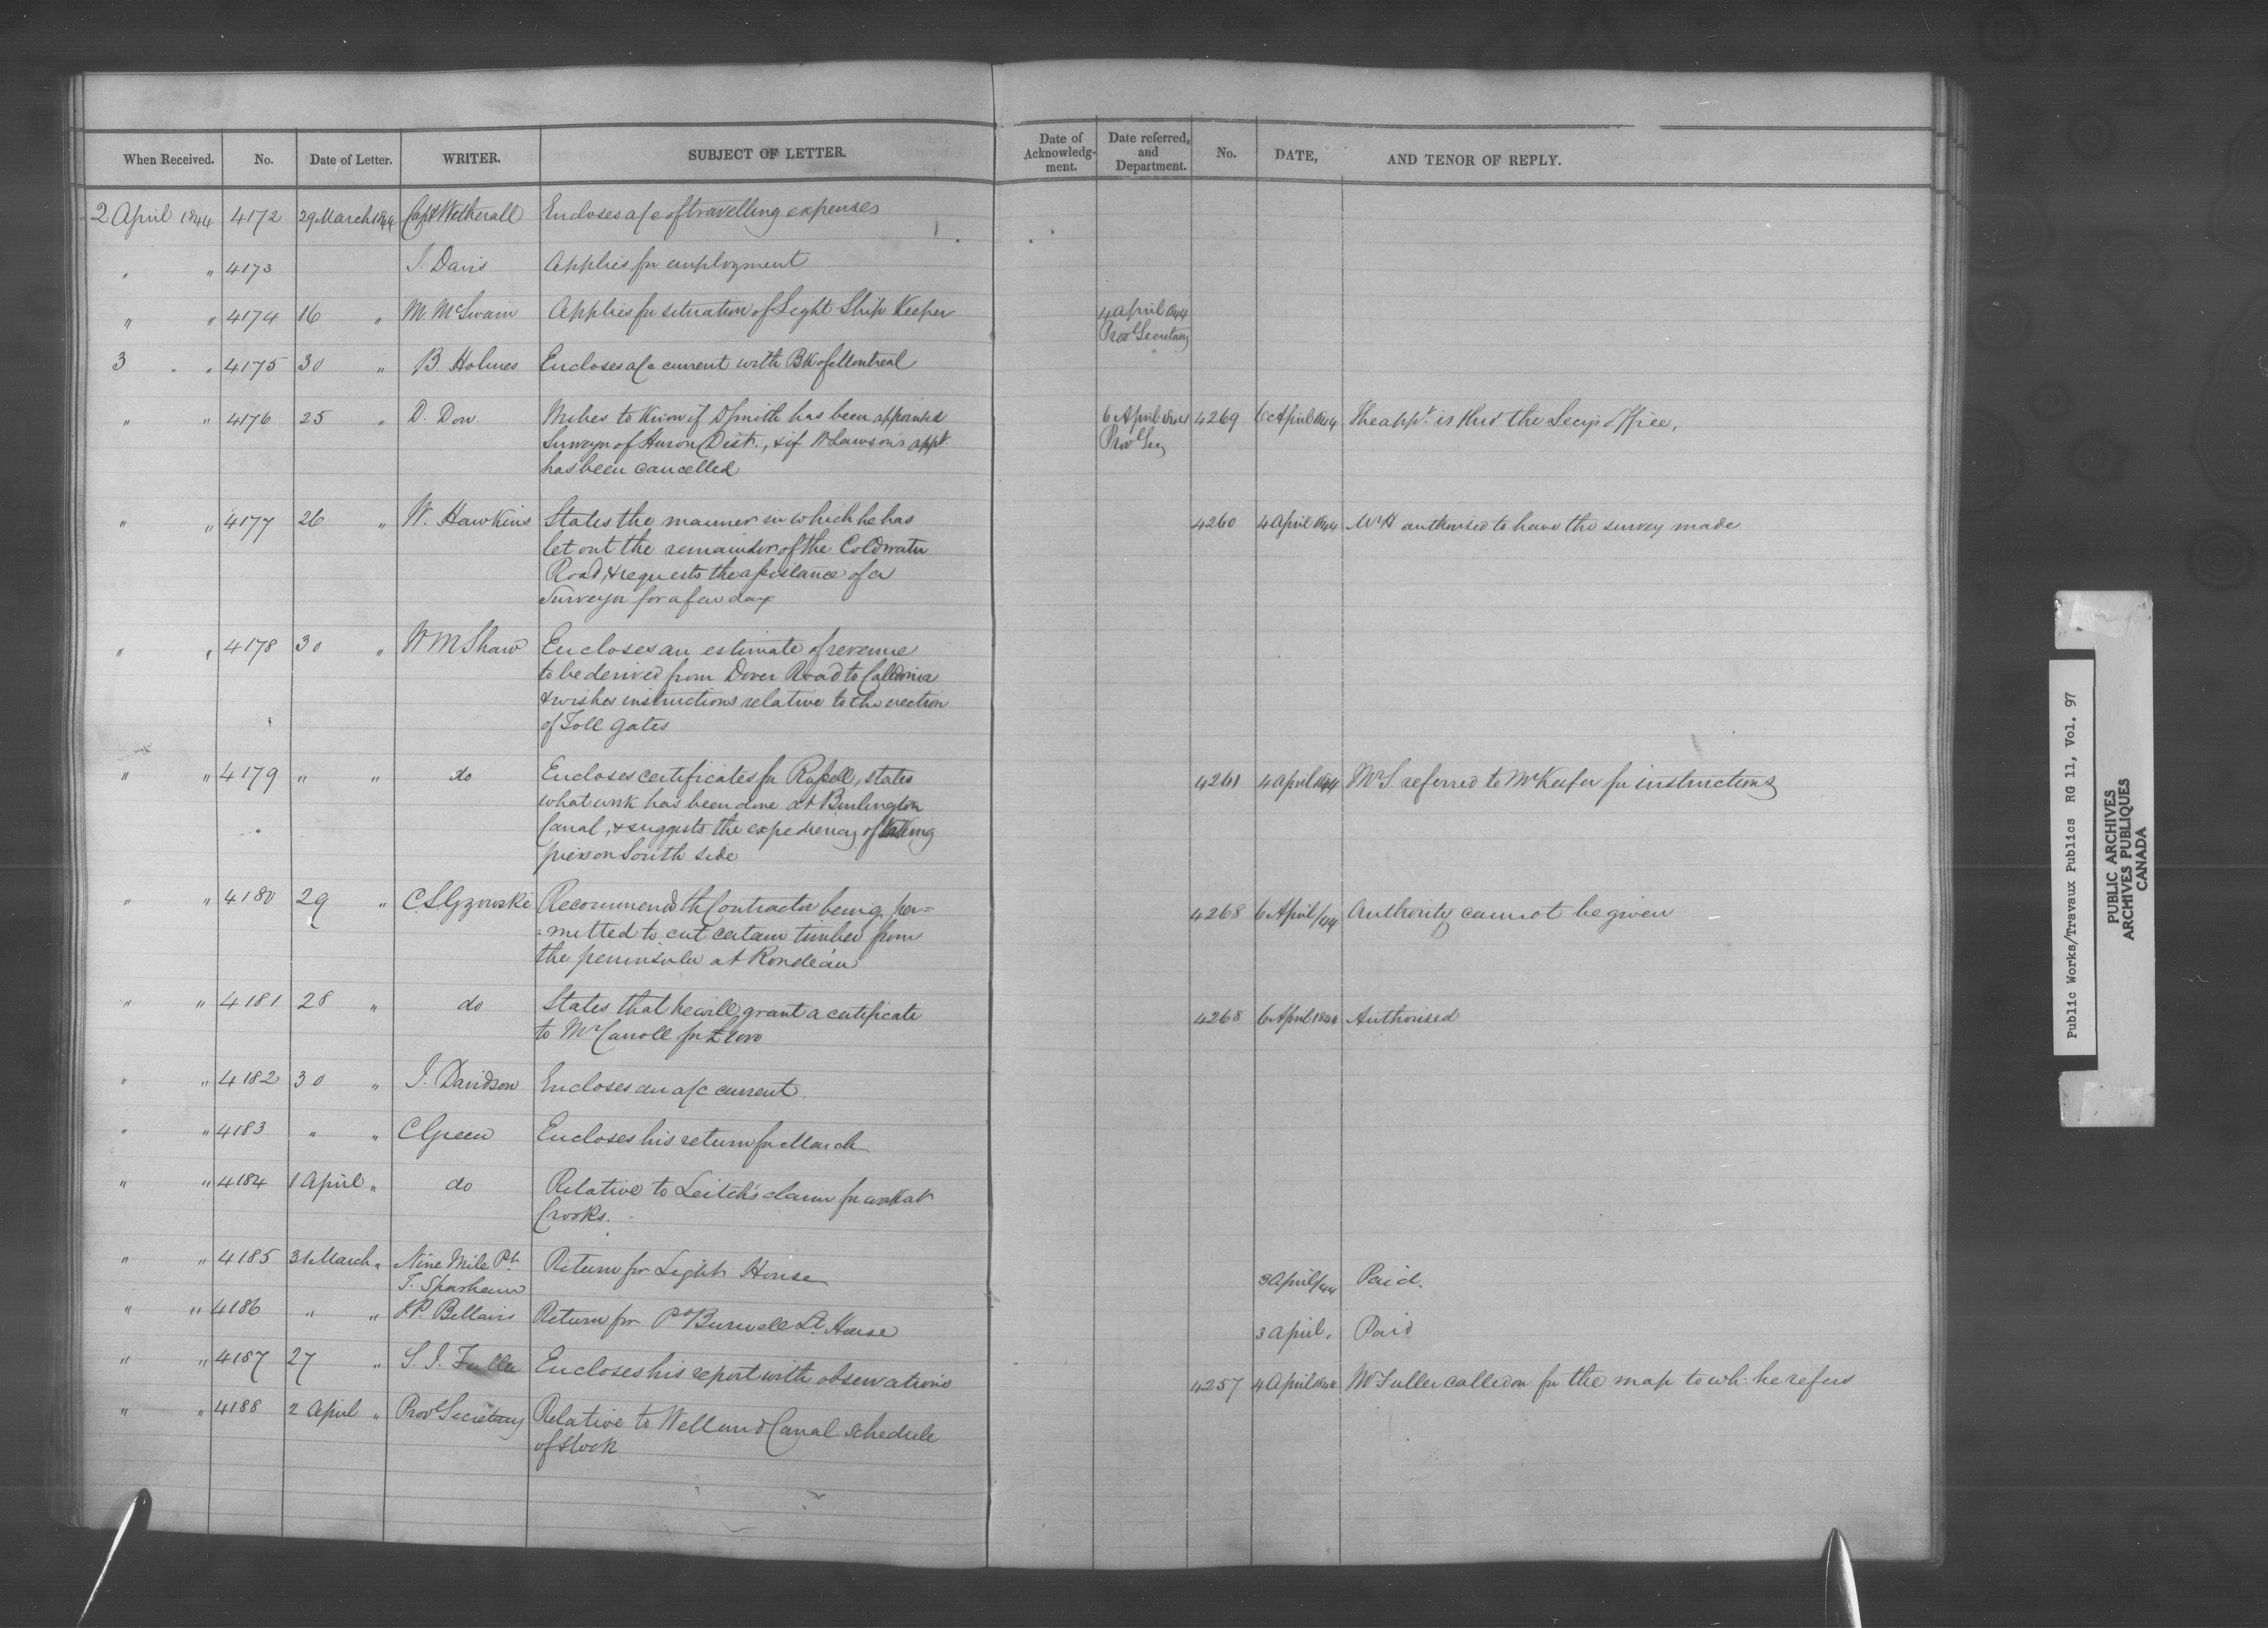 When Received. No. Date of Letter. WRITER. SUBJECT OF LETTER. Date of Acknowledg-ment. Date referred, and Department. No. DATE, AND TENOR OF REPLY.
2 April 1844 4172 29 March 1844 Capt Wetherall Encloses a/c of travelling expenses
" " 4173 J. Davis Applies for employment
" " 4174 16 " M. McSwain Applies for situation of Light Ship Keeper 4 April 1844
Prov Secretary
3 " " 4175 30 " B. Holmes Encloses a/c current with BK of Montreal
" " 4176 25 " D. Don Wishes to Know if D Smith has been appointed 6 April 1844 4269 6 April 1844 The appt. is thro' the Secy's office,
Surveyor of Huron Dist., & if Wm Lawson's appt Prov Secy
has been cancelled
" " 4177 26 " W. Hawkins States the manner in which he has 4260 4 April 1844 Mr H authorised to have the survey made
let out the remainder of the Coldwater
Road, & requests the assistance of a
Surveyor for a few days
" " 4178 30 " W M Shaw Encloses an estimate of revenue
to be derived from Dover Road to Caledonia
& wishes instructions relative to the erection
of Toll gates
" " 4179 " " do Encloses certificates for Russell, states 4261 4 April 1844 Mr S. referred to Mr Keefer for instructions
what work has been done at Burlington
Canal, & suggests the expediency of taking
piers on South side
" " 4180 29 " C.S Gzowski Recommends the Contractor being per= 4268 6 April/44 Authority cannot be given
=mitted to cut certain timber from
the peninsula at Rondeau
" " 4181 28 " do States that he will grant a certificate 4268 6 April 1844 Authorised
to Mr Carroll for
" " 4182 30 " J. Davidson Encloses an a/c current
" " 4183 " " C Green Encloses his return for March
" " 4184 1 April " do Relative to Leitch's claim for work at
Crooks.
" " 4185 31 March " Nine Mile Pt. Return for Light House 3 April/44 Paid.
T. Sparham
" " 4186 " " H.P. Bellairs Return for Pt Burwell Lt. House 3 April, Paid
" " 4187 27 " S. J. Fuller Encloses his report with observations 4257 4 April 1844 Mr Fuller called on for the map to wh. he refers
" " 4188 2 April " Prov Secretary Relative to Welland Canal schedule
of stock
Public Works/Travaux Publics RG 11, Vol. 97
PUBLIC ARCHIVES
ARCHIVES PUBLIQUES
CANADA